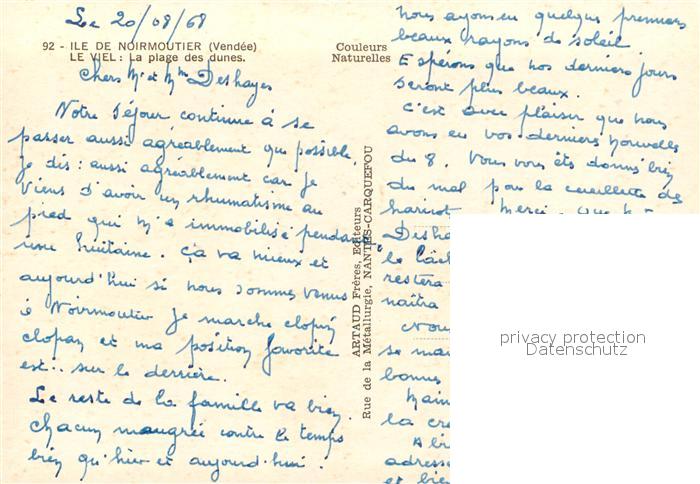 Le 20/08/68
92 - ILE DE NOIRMOUTIER (Vendée)
LE VIEL : La plage des dunes.
Couleurs
Naturelles
Chers Mr et Mme Deshayes
Notre séjour continue à se
passer aussi agréablement que possible,
je dis : aussi agréablement car je
viens d'avoir un rhumatisme au
pied qui m'a immobilisé pendant
une huitaine. Ça va mieux et
aujourd'hui si nous sommes venus
à Noirmoutier je marche clopin
clopan et ma position favorite
est.. sur le derrière.
Le reste de la famille va bien.
Chacun maugrée contre le temps
bien qu'hier et aujourd'hui
ARTAUD Frères, Editeurs
Rue de la Métallurgie, NANTES-CARQUEFOU
nous ayons eu quelques premiers
beaux rayons de soleil.
Espérons que nos derniers jours
seront plus beaux.
C'est avec plaisir que nous
avons eu vos derniers nouvelles
du 8. Vous vous êtes donnés bien
du mal pour la cueillette des
haricots. Merci, que
Desha
le
restera
naîtra
Nou
se mai
bonus
Main
la cr
A bi
adress
et bie
privacy protection
Datenschutz